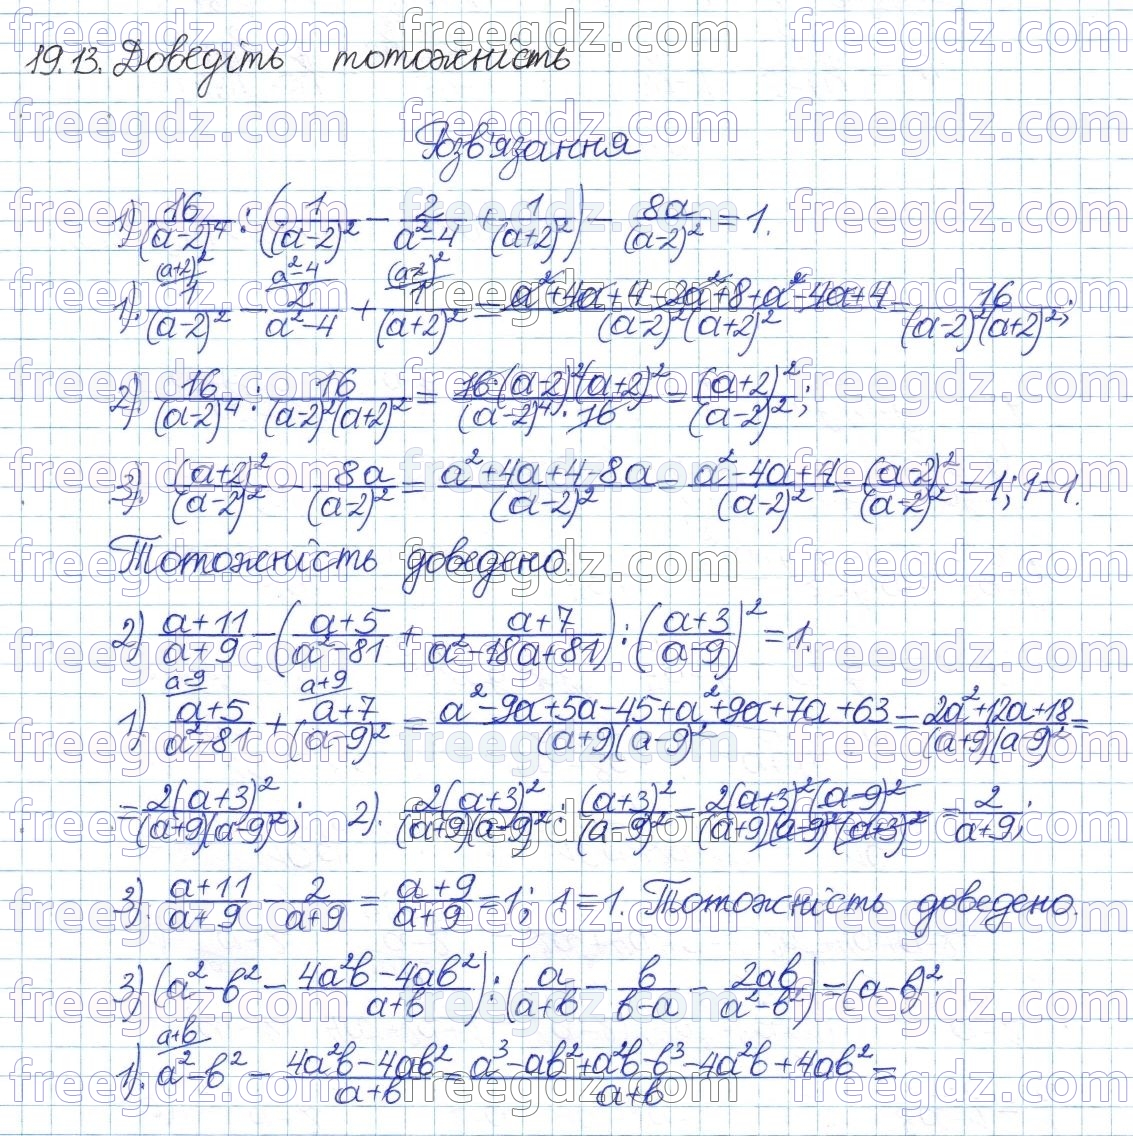 19.13. Доведіть тотожність
Розв'язання
1) 16/(a-2)^4 : (1/(a-2)^2 - 2/(a^2-4) + 1/(a+2)^2) - 8a/(a-2)^2 = 1.
1). (a+2)^2/ 1/(a-2)^2 - a^2-4/ 2/(a^2-4) + (a-2)^2/ 1/(a+2)^2 = (a^2+4a+4-2a^2+8+a^2-4a+4)/((a-2)^2(a+2)^2) = 16/((a-2)^2(a+2)^2);
2). 16/(a-2)^4 : 16/((a-2)^2(a+2)^2) = (16·(a-2)^2(a+2)^2)/((a-2)^4·16) = (a+2)^2/(a-2)^2;
3). (a+2)^2/(a-2)^2 - 8a/(a-2)^2 = (a^2+4a+4-8a)/(a-2)^2 = (a^2-4a+4)/(a-2)^2 = (a-2)^2/(a-2)^2 = 1; 1=1.
Тотожність доведено.
2) (a+11)/(a+9) - ((a+5)/(a^2-81) + (a+7)/(a^2-18a+81)) : ((a+3)/(a-9))^2 = 1.
1). a-9/ (a+5)/(a^2-81) + a+9/ (a+7)/(a-9)^2 = (a^2-9a+5a-45+a^2+9a+7a+63)/((a+9)(a-9)^2) = (2a^2+12a+18)/((a+9)(a-9)^2) =
= 2(a+3)^2/((a+9)(a-9)^2); 2). 2(a+3)^2/((a+9)(a-9)^2) : (a+3)^2/(a-9)^2 = (2(a+3)^2(a-9)^2)/((a+9)(a-9)^2(a+3)^2) = 2/(a+9);
3). (a+11)/(a+9) - 2/(a+9) = (a+9)/(a+9) = 1; 1=1. Тотожність доведено.
3) (a^2-b^2 - (4a^2b-4ab^2)/(a+b)) : (a/(a+b) - b/(b-a) - 2ab/(a^2-b^2)) = (a-b)^2.
1). a+b/ a^2-b^2 - (4a^2b-4ab^2)/(a+b) = (a^3-ab^2+a^2b-b^3-4a^2b+4ab^2)/(a+b) =
freegdz.com